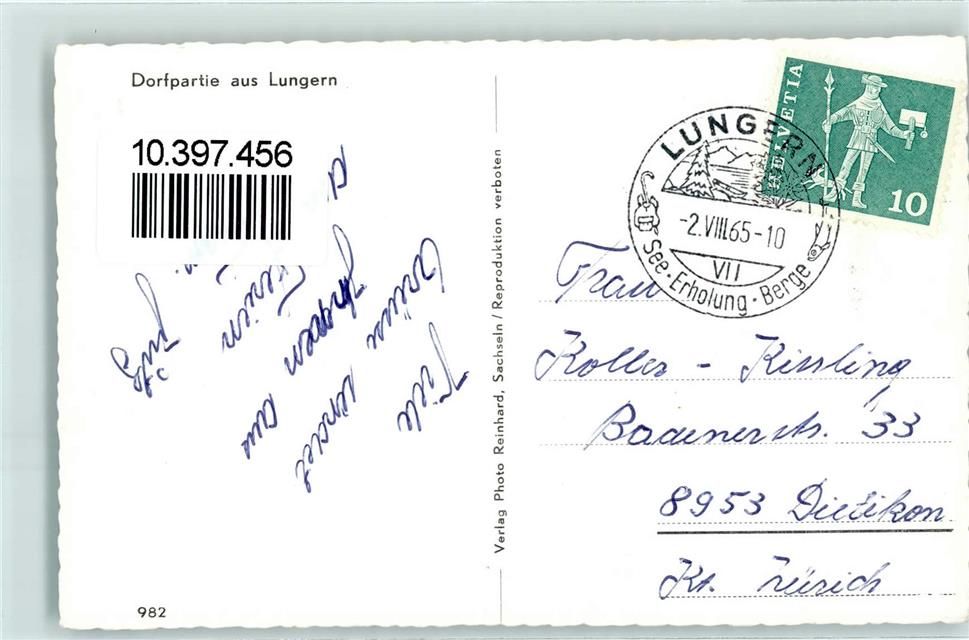 Dorfpartie aus Lungern
10.397.456
Viele
Grüsse
unserer
aus
Ferien
Verlag Photo Reinhard, Sachseln / Reproduktion verboten
982
HELVETIA
10
LUNGERN
-2.VIII.65-10
VII
See · Erholung · Berge
Frau
Koller - Kissling
Badenerstr. 33
8953 Dietikon
Kt. Zürich